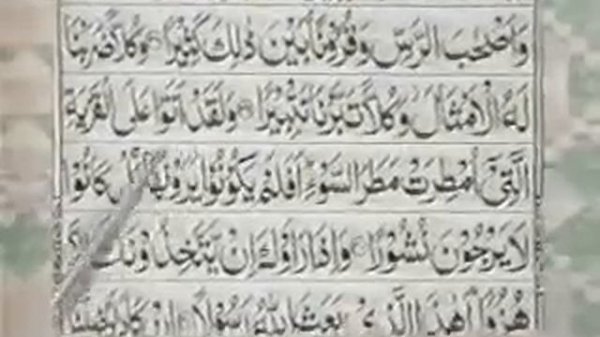 وَاَصْحٰبَ الرَّسِّ وَقُرُوْنًۢا بَيْنَ ذٰلِكَ كَثِيْرًا وَكُلًّا ضَرَبْنَا
لَهُ الْاَمْثَالَ وَكُلًّا تَبَّرْنَا تَتْبِيْرًا وَلَقَدْ اَتَوْا عَلَى الْقَرْيَةِ
الَّتِيْٓ اُمْطِرَتْ مَطَرَ السَّوْءِ اَفَلَمْ يَكُوْنُوْا يَرَوْنَهَا بَلْ كَانُوْا
لَا يَرْجُوْنَ نُشُوْرًا وَاِذَا رَاَوْكَ اِنْ يَّتَّخِذُوْنَكَ اِلَّا
هُزُوًا اَهٰذَا الَّذِيْ بَعَثَ اللّٰهُ رَسُوْلًا اِنْ كَادَ لَيُضِلُّنَا